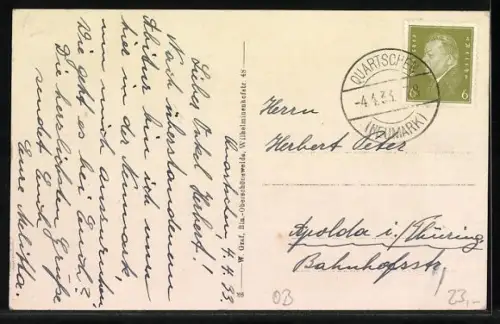 Quartschen, 4.4.33.
Lieber Onkel Hebert!
Nach überstandenem
Abitur bin ich nun
hier in der Neumark,
um mich auszuruhen.
Wie geht es bei Euch?
Die herzlichsten Grüße
sendet Euch
Eure Melitta.
W. Graf, Bln.-Oberschöneweide, Wilhelminenhofstr. 48
QUARTSCHEN
-4.4.33.
(NEUMARK)
6 6
Herrn
Herbert Peter
Apolda i./Thüring.
Bahnhofsstr.
OB
23,-